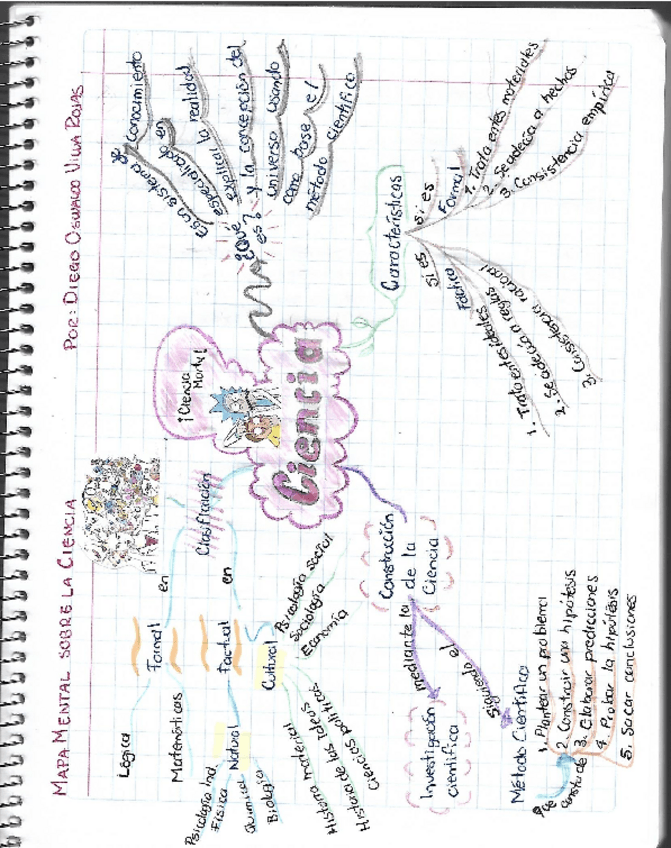 MAPA MENTAL SOBRE LA CIENCIA
POR: DIEGO OSWALDO VILLA ROJAS
Ciencia
¡Ciencia
Morty!
¿Qué
es?
Es un sistema de conocimiento
especializado en
explicar la realidad
y la concepción del
universo usando
como base el
método científico
Clasificación
en
Formal
Lógica
Matemáticas
en
Factual
Natural
Psicología Ind.
Física
Química
Biología
Cultural
Psicología social
Sociología
Economía
Historia material
Historia de las ideas
Ciencias políticas
Características
si es
Formal
1. Trata entes materiales
2. Se adecúa a hechos
3. Consistencia empírica
si es
Fáctica
1. Trata entes ideales
2. Se adecúa a reglas
3. Consistencia racional
Construcción
de la
Ciencia
mediante la
Investigación
científica
siguiendo el
Método Científico
que
consta de
1. Plantear un problema
2. Construir una hipótesis
3. Elaborar predicciones
4. Probar la hipótesis
5. Sacar conclusiones